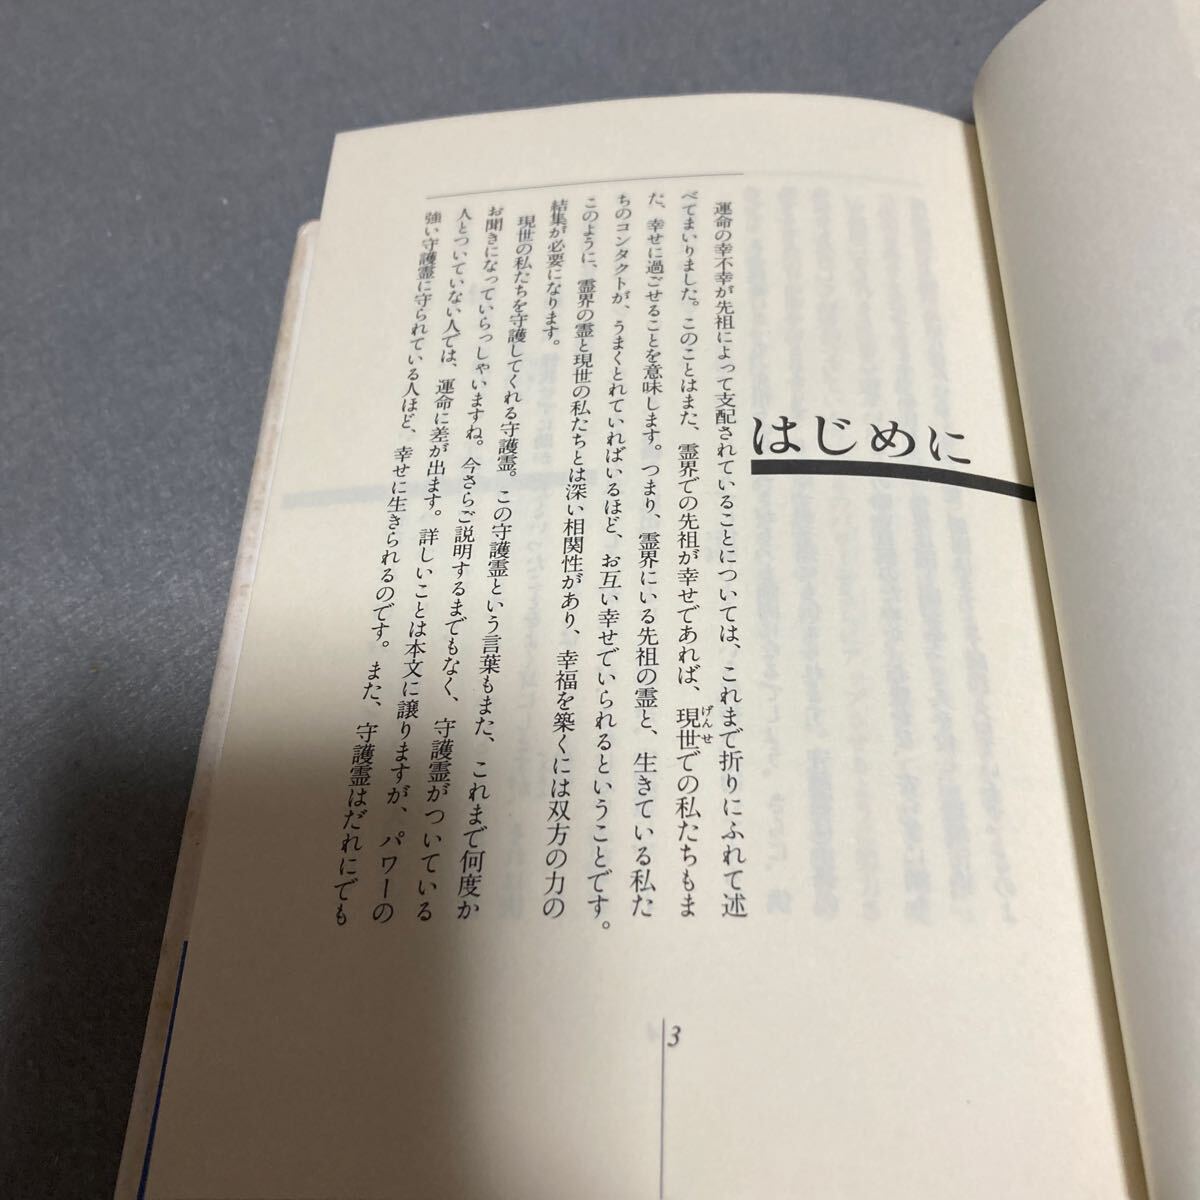 はじめに
運命の幸不幸が先祖によって支配されていることについては、これまで折りにふれて述
べてまいりました。このことはまた、霊界での先祖が幸せであれば、現世での私たちもま
げんせ
た、幸せに過ごせることを意味します。つまり、霊界にいる先祖の霊と、生きている私た
ちのコンタクトが、うまくとれていればいるほど、お互い幸せでいられるということです。
このように、霊界の霊と現世の私たちとは深い相関性があり、幸福を築くには双方の力の
結集が必要になります。
現世の私たちを守護してくれる守護霊。この守護霊という言葉もまた、これまで何度か
お聞きになっていらっしゃいますね。今さらご説明するまでもなく、守護霊がついている
人とついていない人では、運命に差が出ます。詳しいことは本文に譲りますが、パワーの
強い守護霊に守られている人ほど、幸せに生きられるのです。また、守護霊はだれにでも
3